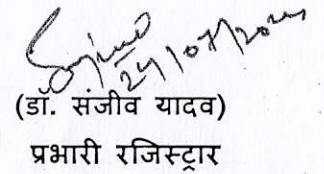 24/07/2024
(डॉ. संजीव यादव)
प्रभारी रजिस्ट्रार